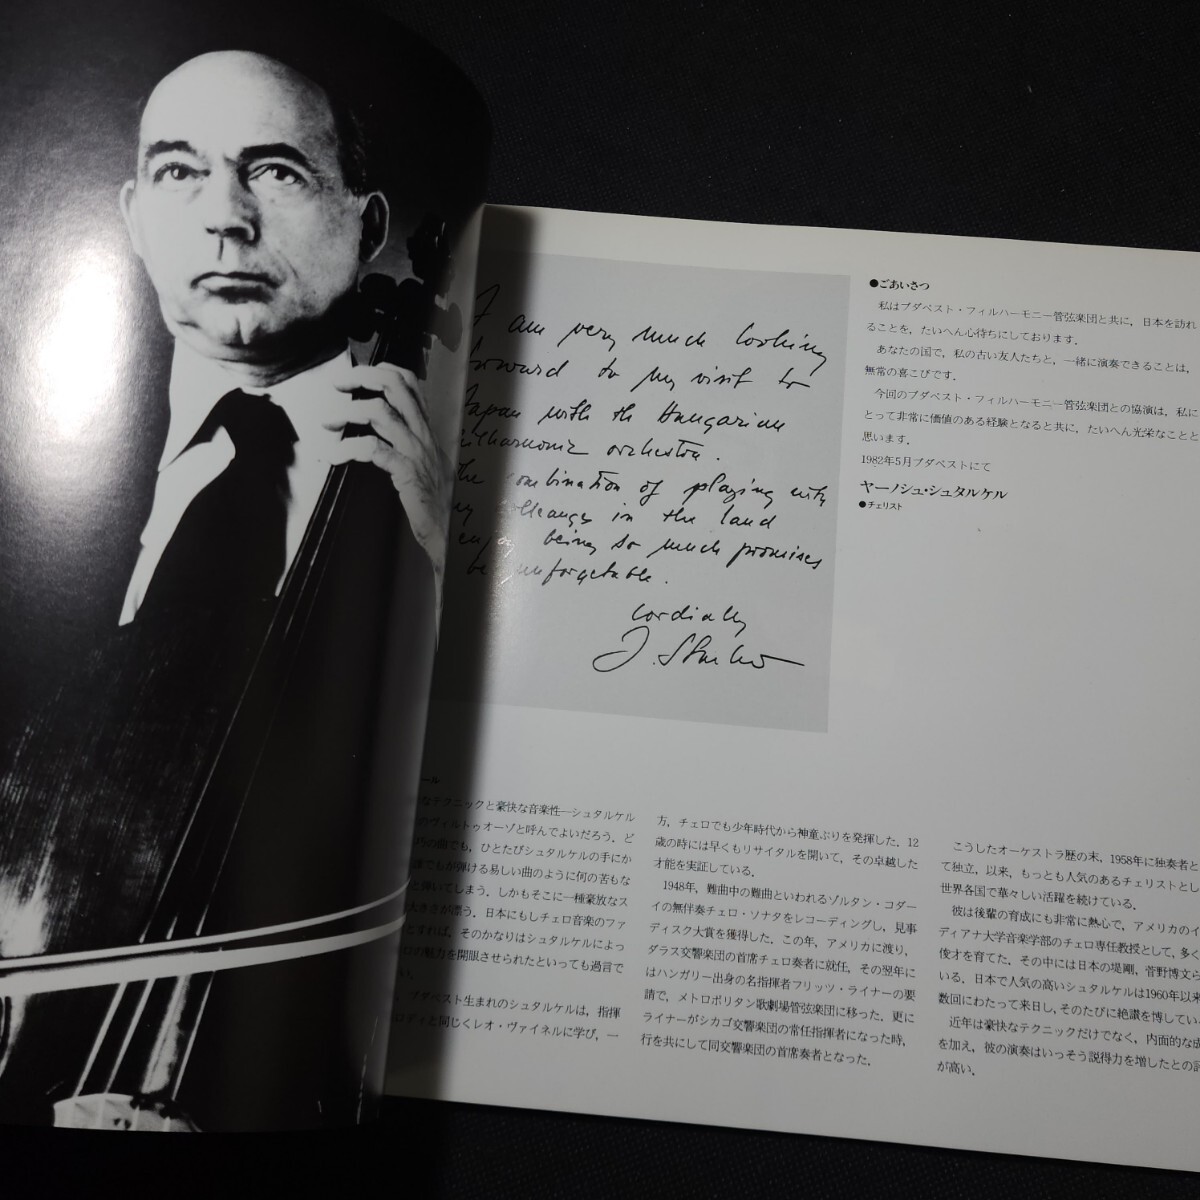 I am very much looking
forward to my visit to
Japan with th Hungarian
Philharmonic orchestra.
The combination of playing with
my colleanges in the land
enjoy being so much promises
be unforgetable.
Cordially
J. Starker
●ごあいさつ
私はブダペスト・フィルハーモニー管弦楽団と共に，日本を訪れ
ることを，たいへん心待ちにしております．
あなたの国で，私の古い友人たちと，一緒に演奏できることは，
無常の喜こびです．
今回のブダペスト・フィルハーモニー管弦楽団との協演は，私に
とって非常に価値のある経験となると共に，たいへん光栄なことと
思います．
1982年5月ブダペストにて
ヤーノシュ・シュタルケル
●チェリスト
ール
なテクニックと豪快な音楽性―シュタルケル
のヴィルトゥオーゾと呼んでよいだろう．ど
巧の曲でも，ひとたびシュタルケルの手にか
誰でもが弾ける易しい曲のように何の苦もな
と弾いてしまう．しかもそこに一種豪放なス
大きさが漂う．日本にもしチェロ音楽のファ
とすれば，そのかなりはシュタルケルによっ
ロの魅力を開眼させられたといっても過言で
い．
ブダペスト生まれのシュタルケルは，指揮
ロディと同じくレオ・ヴァイネルに学び，一
方，チェロでも少年時代から神童ぶりを発揮した．12
歳の時には早くもリサイタルを開いて，その卓越した
才能を実証している．
1948年，難曲中の難曲といわれるゾルタン・コダー
イの無伴奏チェロ・ソナタをレコーディングし，見事
ディスク大賞を獲得した．この年，アメリカに渡り，
ダラス交響楽団の首席チェロ奏者に就任，その翌年に
はハンガリー出身の名指揮者フリッツ・ライナーの要
請で，メトロポリタン歌劇場管弦楽団に移った．更に
ライナーがシカゴ交響楽団の常任指揮者になった時，
行を共にして同交響楽団の首席奏者となった．
こうしたオーケストラ歴の末，1958年に独奏者と
て独立，以来，もっとも人気のあるチェリストとし
世界各国で華々しい活躍を続けている．
彼は後輩の育成にも非常に熱心で，アメリカのイ
ディアナ大学音楽学部のチェロ専任教授として，多く
俊才を育てた．その中には日本の堤剛，菅野博文ら
いる．日本で人気の高いシュタルケルは1960年以来
数回にわたって来日し，そのたびに絶讃を博してい
近年は豪快なテクニックだけでなく，内面的な成
を加え，彼の演奏はいっそう説得力を増したとの評
が高い．